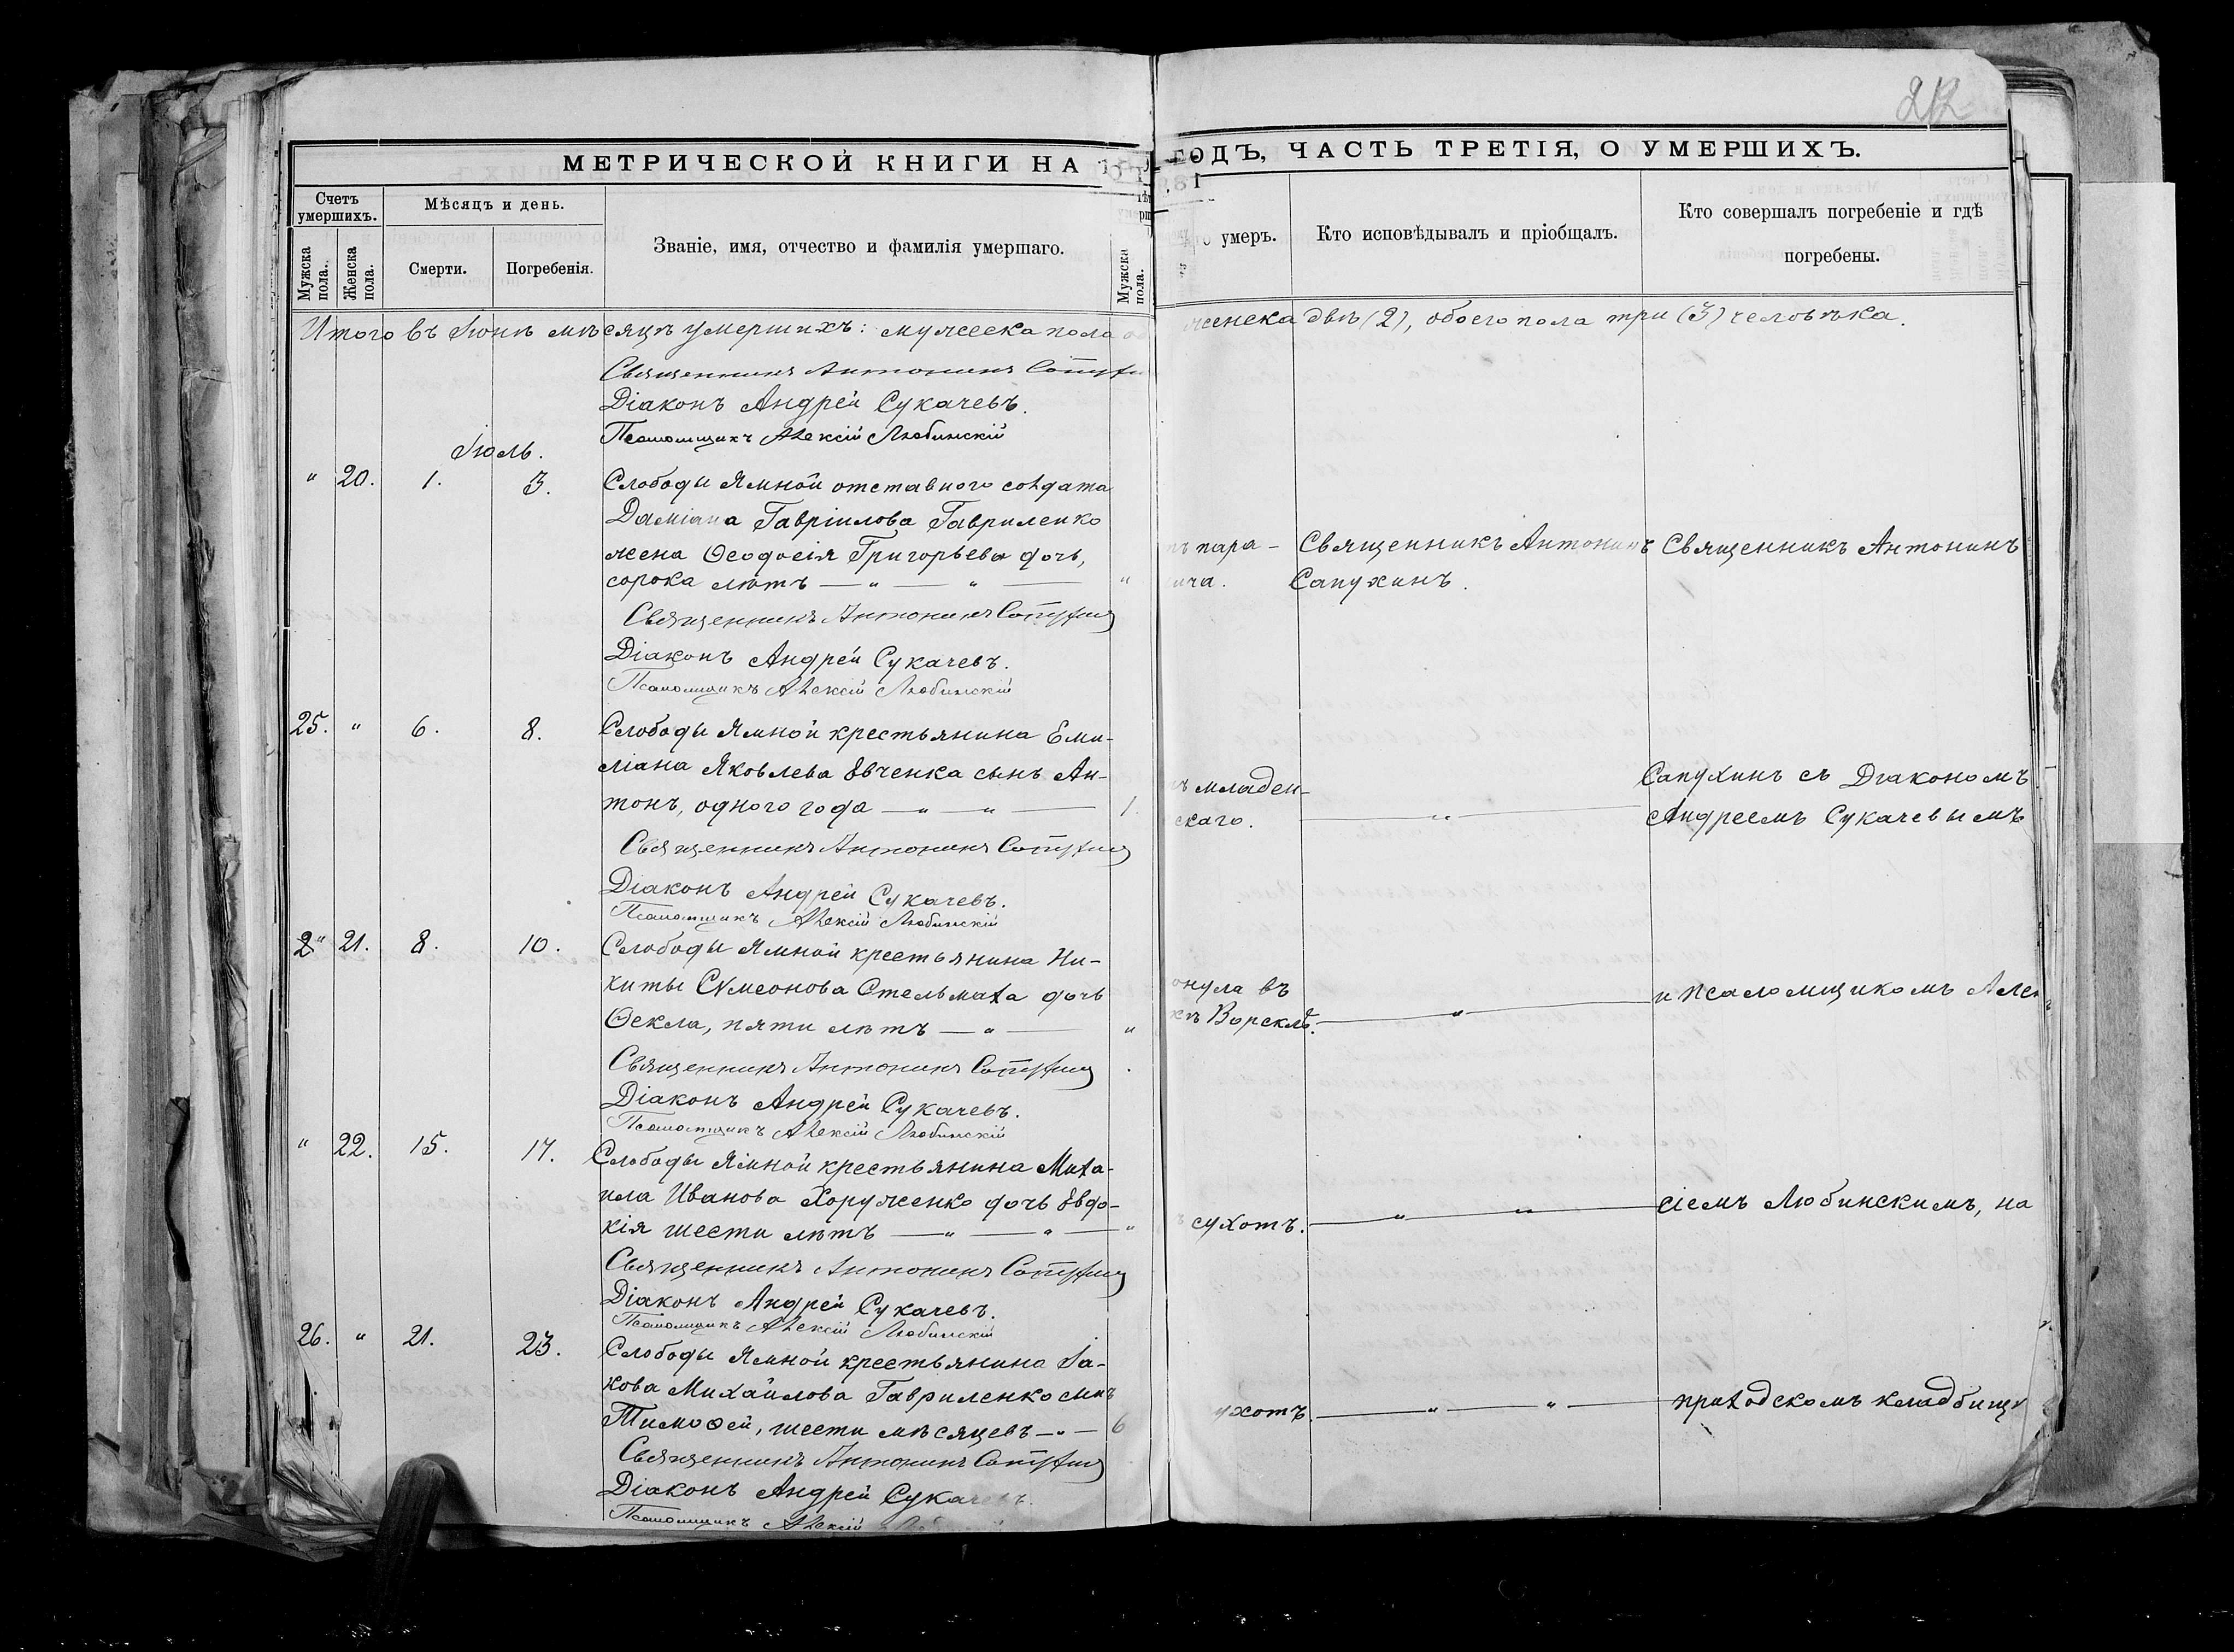 212
МЕТРИЧЕСКОЙ КНИГИ НА
ГОДЪ, ЧАСТЬ ТРЕТІЯ, О УМЕРШИХЪ.
Счетъ умершихъ.
Мѣсяцъ и день.
Мужска пола.
Женска пола.
Смерти.
Погребенія.
Званіе, имя, отчество и фамилія умершаго.
Мужска пола.
умеръ.
Кто исповѣдывалъ и пріобщалъ.
Кто совершалъ погребеніе и гдѣ
погребены.
Итого въ Іюнѣ мѣсяцѣ умершихъ: мужеска пола
женска двѣ (2), обоего пола три (3) человѣка.
Священникъ Антонинъ
Діаконъ Андрей Сукачевъ.
Псаломщикъ Алексій Любинскій
Іюль.
" 20. 1. 3. Слободы Ямной отставного солдата
Даміана Гавріилова Гавриленко
жена Ѳеодосія Григорьева дочь,
сорока лѣтъ — " — " — "
пара-
ича.
Священникъ Антонинъ
Сапухинъ.
Священникъ Антонинъ
Священникъ Антонинъ Сапухинъ
Діаконъ Андрей Сукачевъ.
Псаломщикъ Алексій Любинскій
25. " 6. 8. Слободы Ямной крестьянина Еми-
ліана Яковлева Овченка сынъ Ан-
тонъ, одного года — " — " — 1.
младен-
скаго. — " —
Сапухинъ съ Діакономъ
Андреемъ Сукачевымъ
Священникъ Антонинъ Сапухинъ
Діаконъ Андрей Сукачевъ.
Псаломщикъ Алексій Любинскій
" 21. 8. 10. Слободы Ямной крестьянина Ни-
киты Сѵмеонова Стельмаха дочь
Ѳекла, пяти лѣтъ — " — "
онула въ
Ворсклѣ. — " —
и псаломщикомъ Алек
Священникъ Антонинъ Сапухинъ
Діаконъ Андрей Сукачевъ.
Псаломщикъ Алексій Любинскій
" 22. 15. 17. Слободы Ямной крестьянина Миха-
ила Иванова Хоруженко дочь Евдо-
кія шести лѣтъ — " — " — "
сухотъ. — " — " —
сіемъ Любинскимъ, на
Священникъ Антонинъ Сапухинъ
Діаконъ Андрей Сукачевъ.
Псаломщикъ Алексій Любинскій
26. " 21. 23. Слободы Ямной крестьянина Іа-
кова Михайлова Гавриленко сынъ
Тимоѳей, шести мѣсяцевъ — " — 6
ухотъ. — " — " —
приходскомъ кладбищѣ
Священникъ Антонинъ Сапухинъ
Діаконъ Андрей Сукачевъ.
Псаломщикъ Алексій